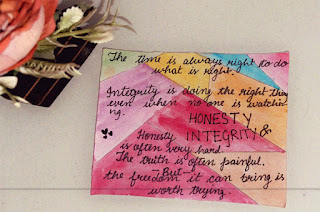 The time is always right to do
what is right.
Integrity is doing the right thing
even when no one is watchin
ng.
HONESTY
&
Honesty INTEGRITY
is often very hard.
The truth is often painful.
But
the freedom it can bring is
worth trying.